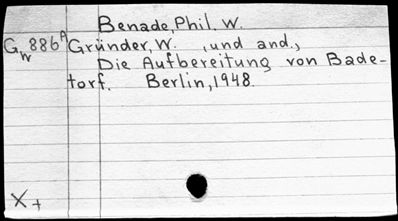 Benade, Phil. W.
Gw 886a Gründer, W. , und and.,
Die Aufbereitung von Bade-
torf. Berlin, 1948.
X+